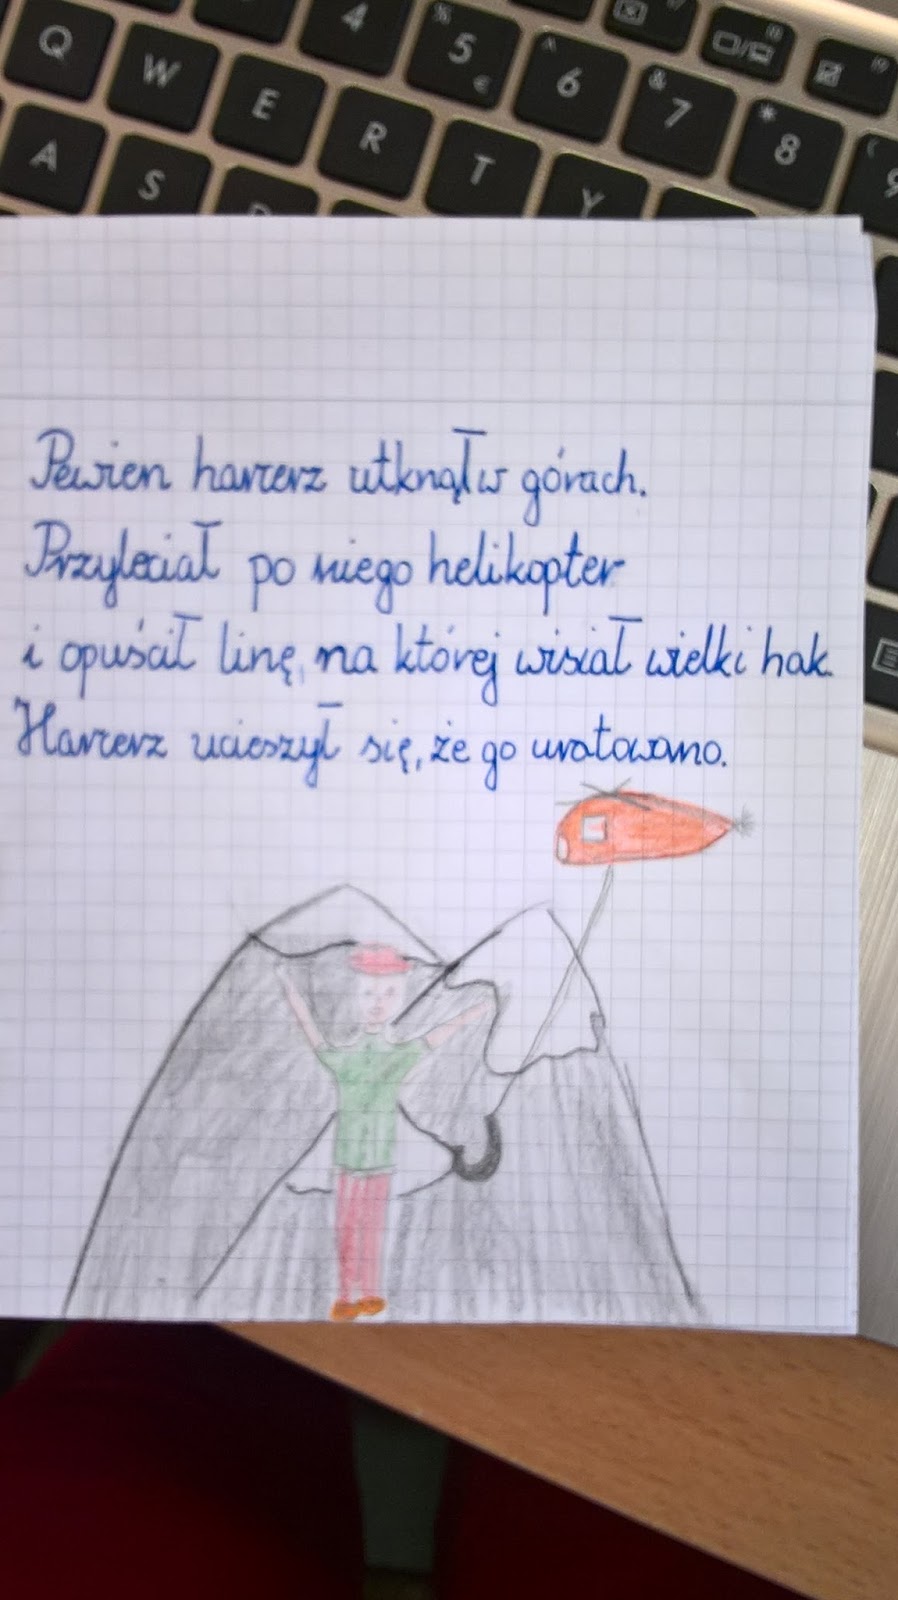 Q W E R T Y
4 % 5 € ^ 6 & 7 * 8 ( 9
A S D
Pewien harcerz utknął w górach.
Przyleciał po niego helikopter
i opuścił linę, na której wisiał wielki hak.
Harcerz ucieszył się, że go uratowano.